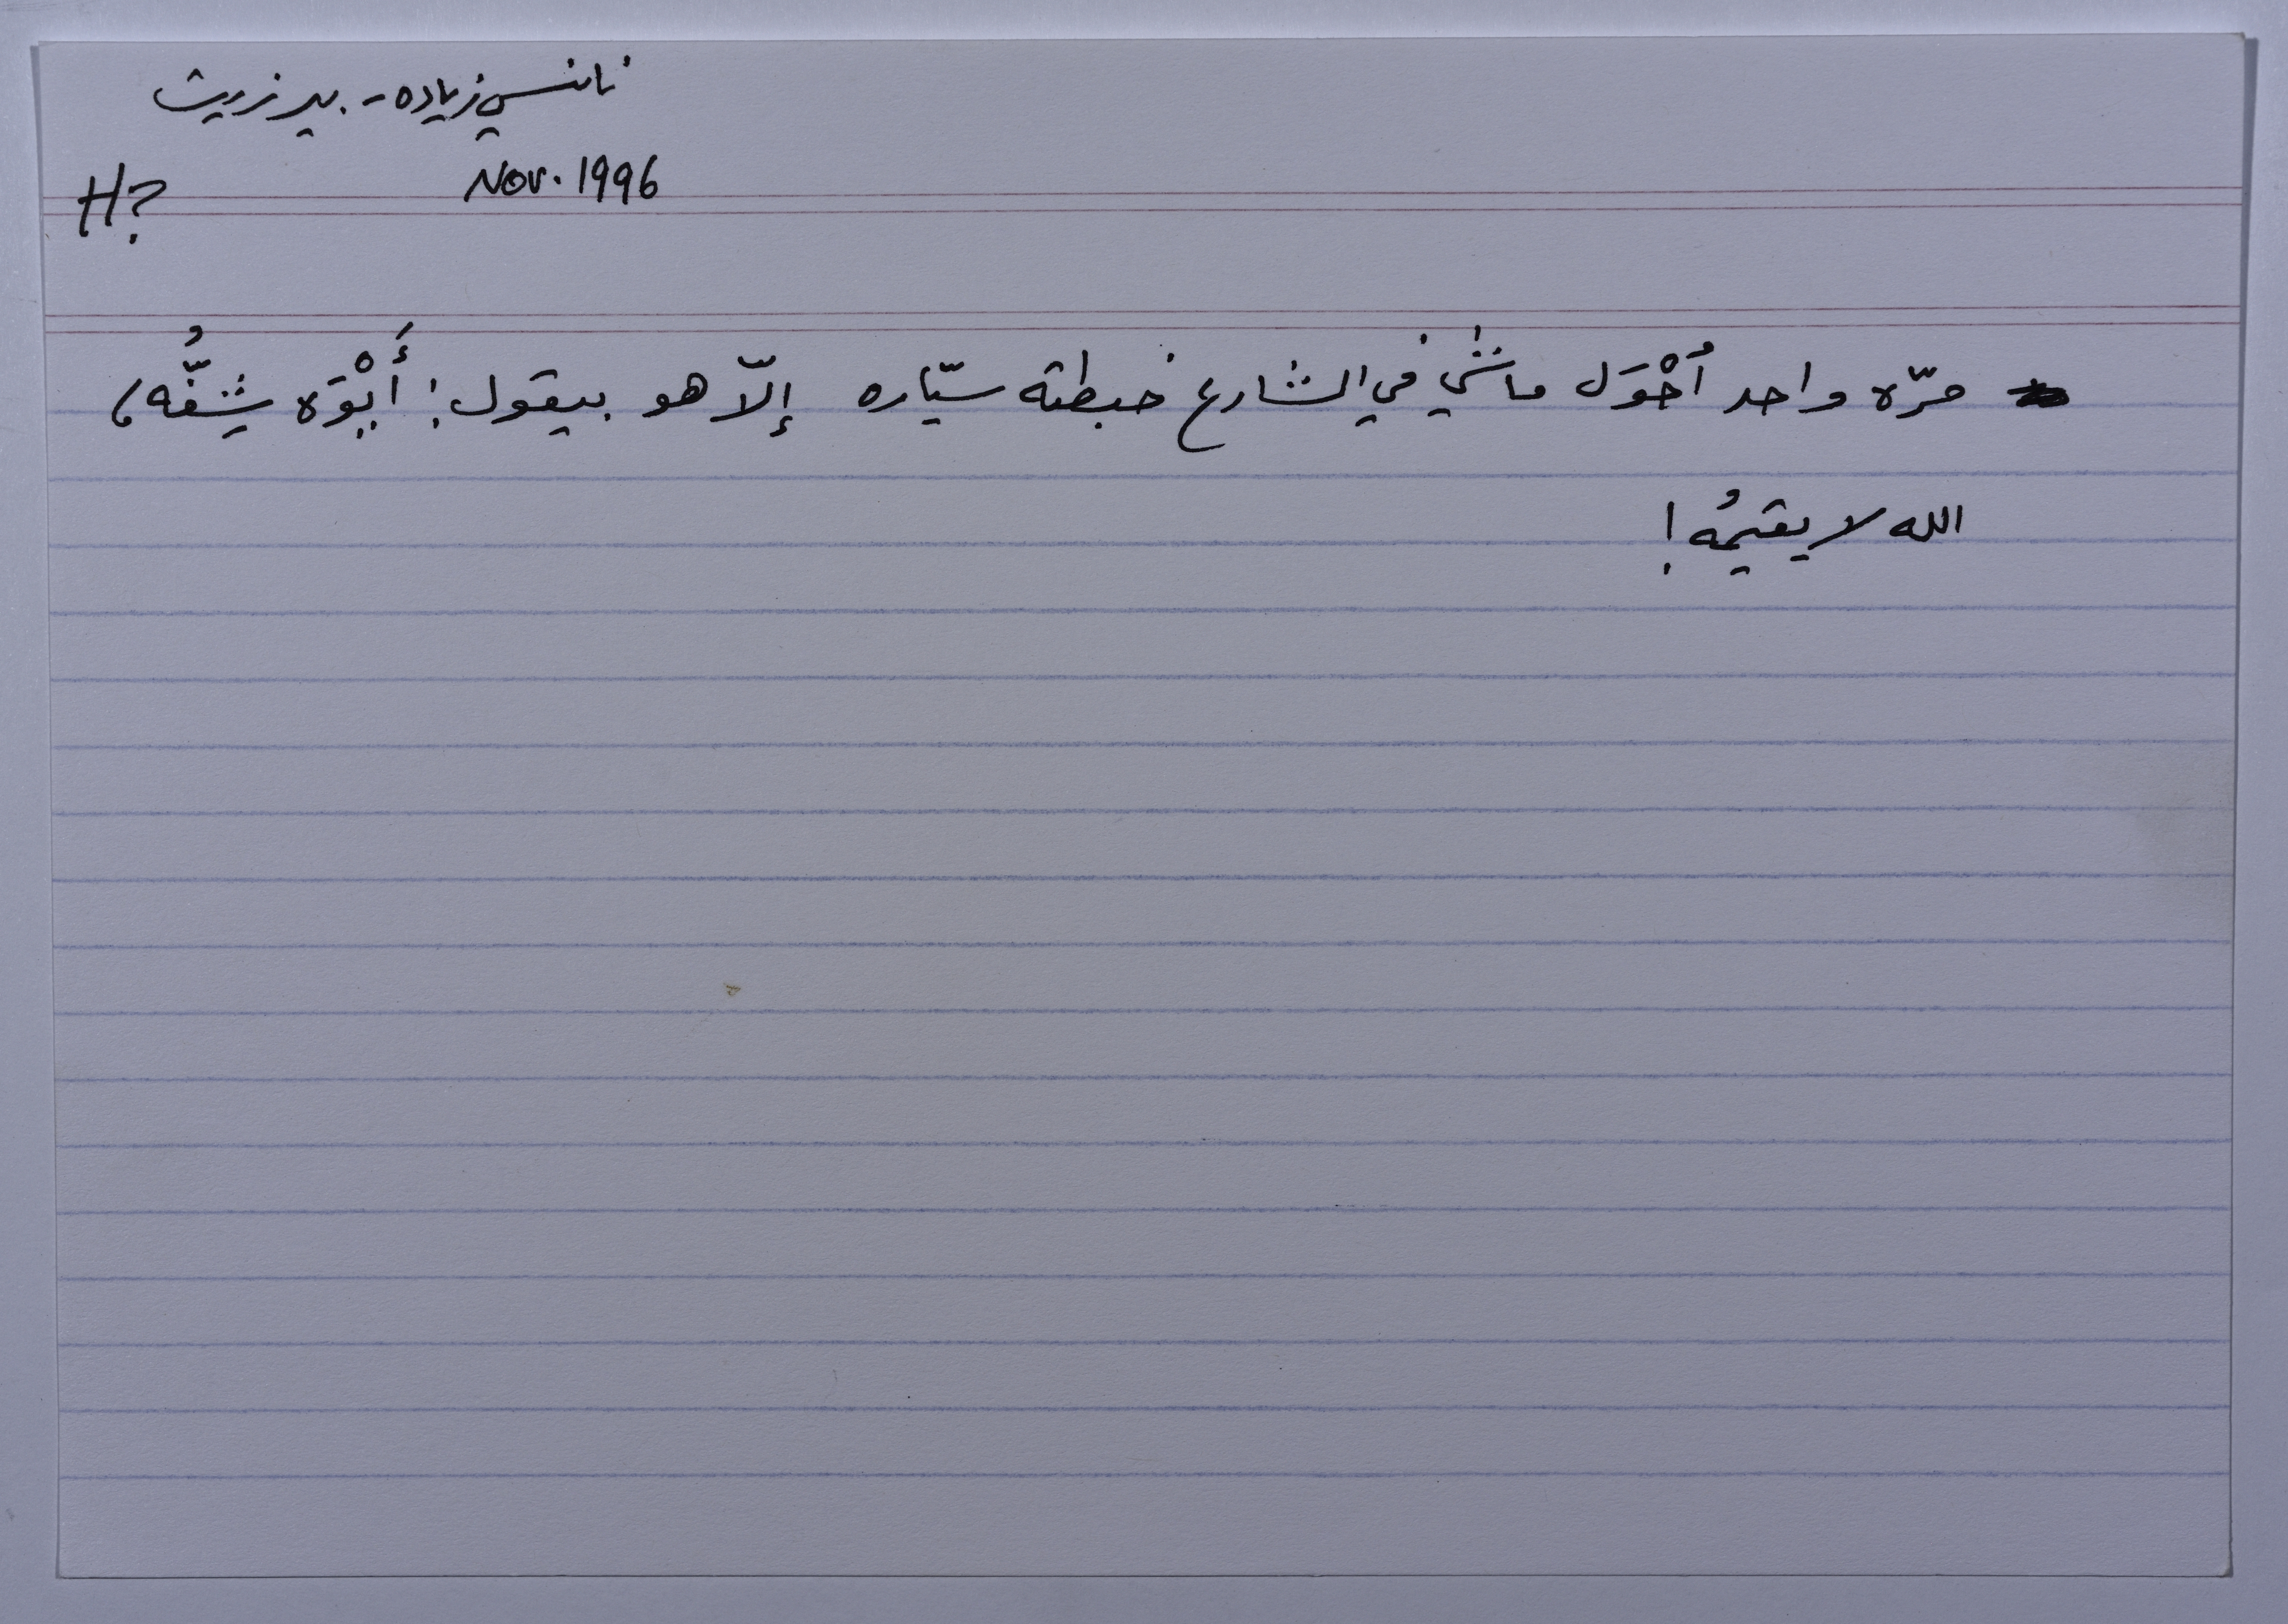 نانسي زياده - بير زيت
Nov. 1996
H?
مرّه واحد أَحْوَل ماشي في الشارع خبطته سيّاره إلاّ هو بيقول: أَيْوَه شِفتُّه،
الله لا يقيمُه!